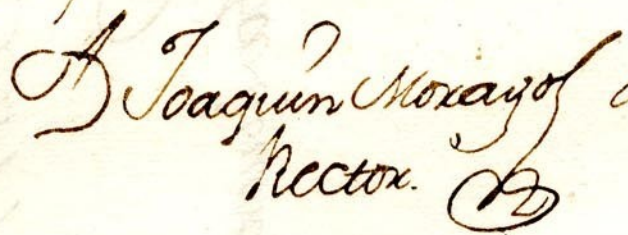 D Joaquin Morayo
Rector.